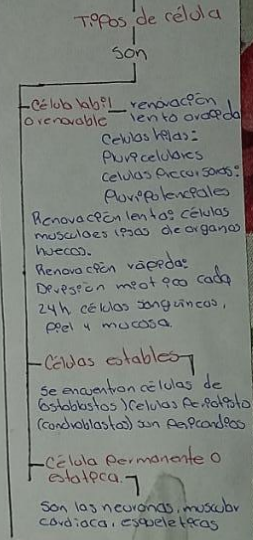 Tipos de célula
son
Célula labil o renovable
renovación lento o rapida
Celulas hijas:
Pluricelulares
celulas Precursoras:
Pluripotenciales
Renovación lenta: células
musculaes lisas de organos
huecos.
Renovación rápida:
División mitotico cada
24h células sanguineas,
piel y mucosa
Células estables
se encuentran células de
(ostoblastos) Celulas
(condroblastos) son
Célula permanente o
estatica.
son las neuronas, muscular
cardiaca, esqueleticas